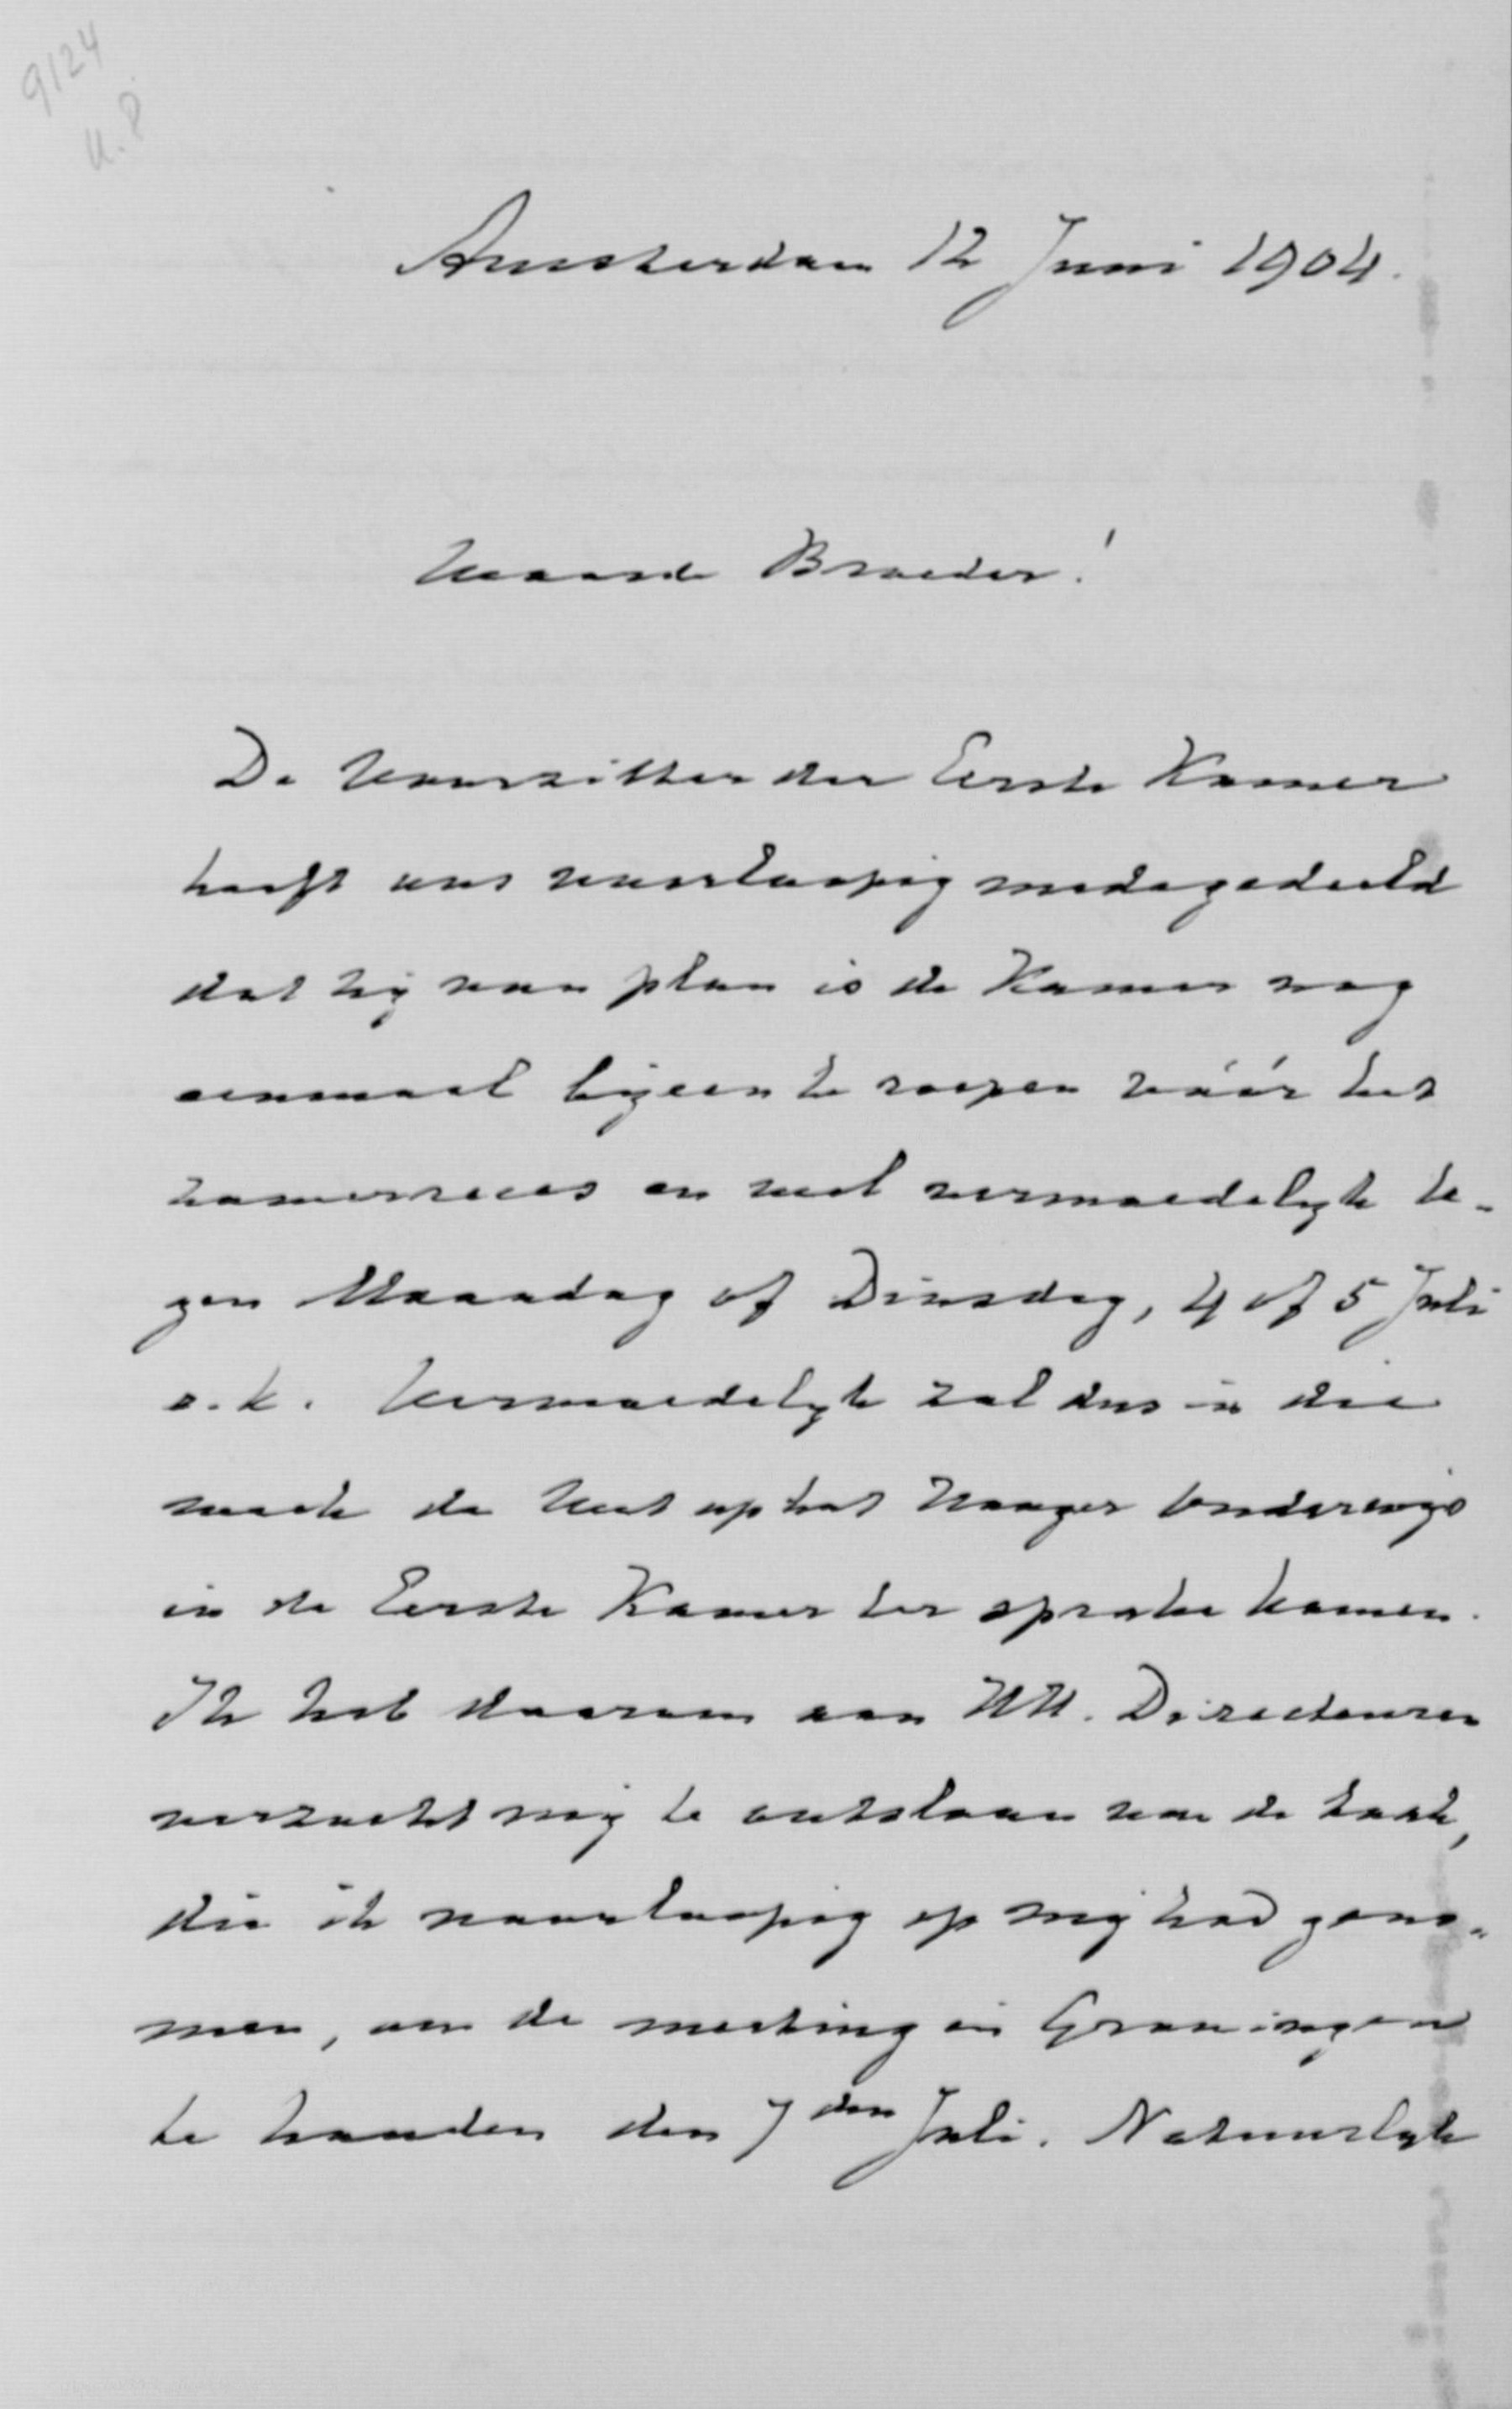 9124
U.P.
Amsterdam 12 Juni 1904.
Waarde Broeder!
De Voorzitter der Eerste Kamer
heeft ons voorloopig medegedeeld
dat hij van plan is de Kamer nog
eenmaal bijeen te roepen vóór het
zomerreces en wel vermoedelijk te-
gen Maandag of Dinsdag, 4 of 5 Juli
a.k. Vermoedelijk zal dus in die
week de Wet op het Hooger Onderwijs
in de Eerste Kamer ter sprake komen.
Ik heb daarom aan HH. Directeuren
verzocht mij te ontslaan van de taak,
die ik voorloopig op mij had geno-
men, om de meeting in Groningen
te houden den 7den Juli. Natuurlijk